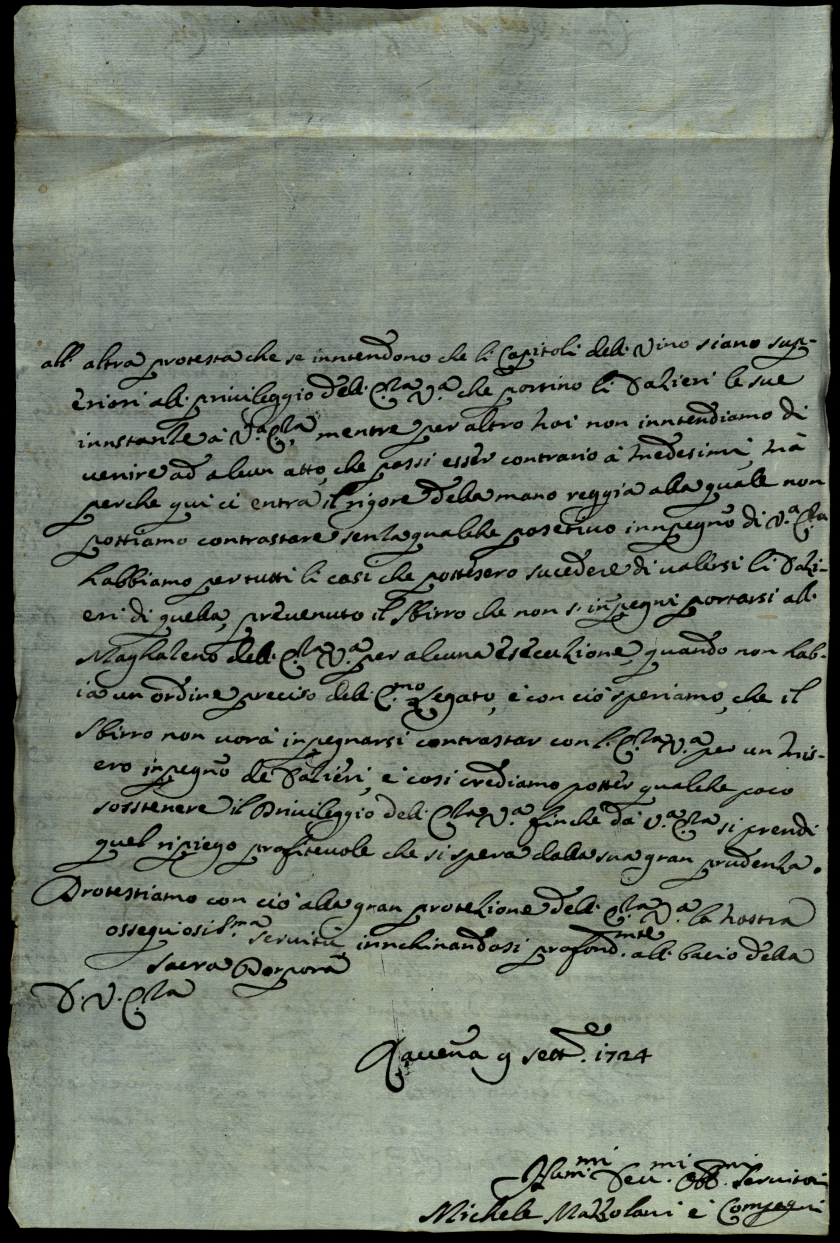 all: altra protesta che se inntendono che li Capitoli dell: Vino siano sup-
eriori all: privileggio dell: E.za V.a che portino li Dazieri le sue
innstanze à V.a E.za, mentre per altro noi non inntendiamo di
venire ad alcun atto, che possi esser contrario à medesimi, mà
perche qui ci entra il rigore della mano reggia alla quale non
pottiamo contrastare senza qualche posetivo innpegno di V.a E.za
habbiamo per tutti li casi che pottesero sucedere di vallersi li Dazi-
eri di quella, prevenuto il Sbirro che non s'inpegni portarsi all:
Maghazeno dell: E.za V.a per alcuna esecuzione, quando non hab-
ia un ordine preciso dell: E.mo Legato, è con ciò speriamo, che il
Sbirro non vorà inpegnarsi contrastar con l: E.za V.a per un mis-
ero inpegno de Dazieri, è così crediamo potter qualche poco
sosstenere il Privileggio dell: E.za V.a finche dà V.a E.za si prendi
quel ripiego profitevole che si spera dalla sua gran prudenza.
Protestiamo con ciò alla gran protezione dell: E.za V.a la nostra
ossequiosiss.ma servitù, innchinandosi profond.mte all: bacio della
sacra Porpora
D. V. E.za
Ravenna 9 sett.e 1724
Hum.mi Dev.mi Obb.mi Servitori
Michele Mazzolani è Compagni